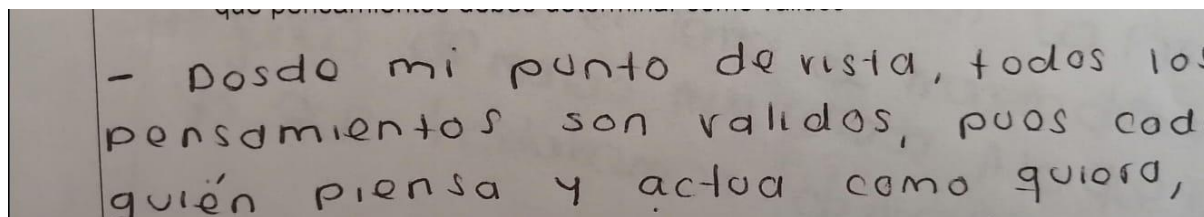 - Desde mi punto de vista, todos los
pensamientos son validos, pues cad
quién piensa y actua como quiera,